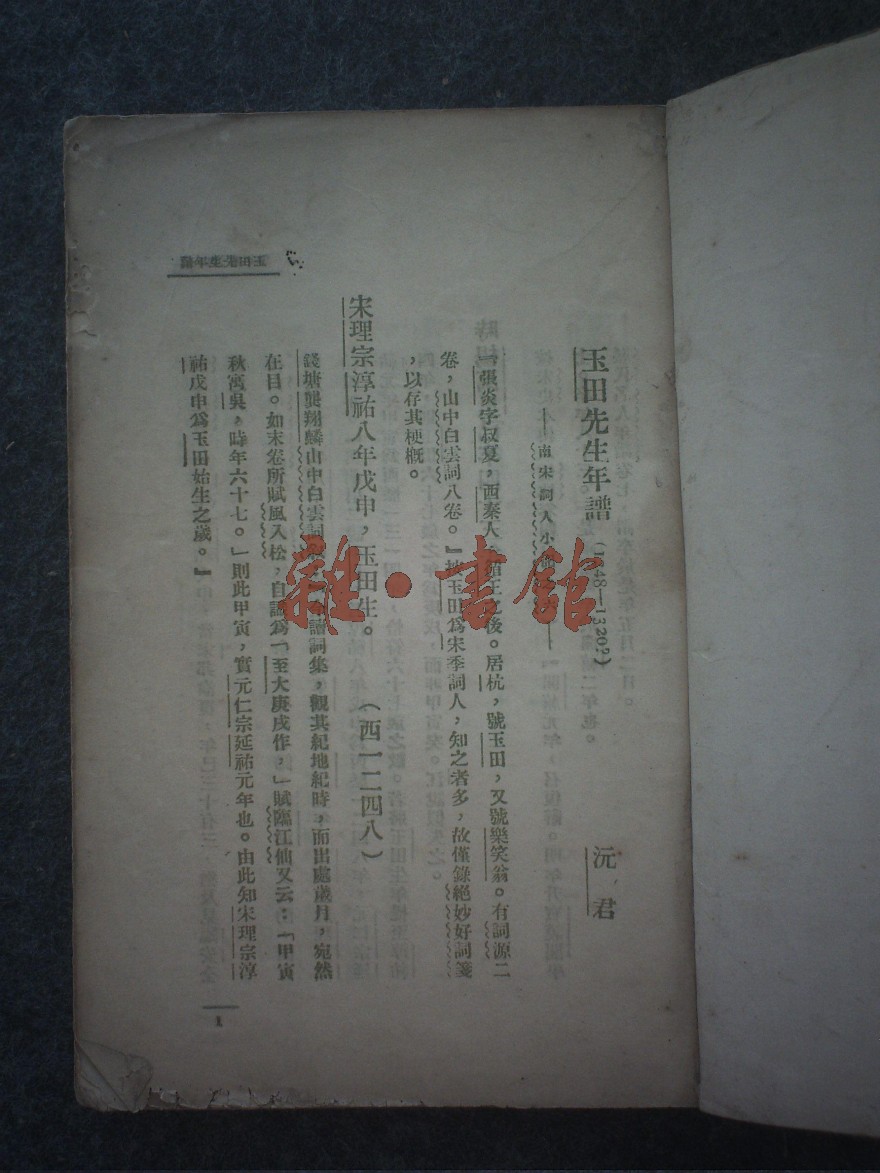 玉田先生年譜（1248—1320?）
——南宋詞人小
沅君
『張炎字叔夏，西秦人，王之後。居杭，號玉田，又號樂笑翁。有詞源二
卷，山中白雲詞八卷。』按玉田爲宋季詞人，知之者多，故僅錄絕妙好詞箋
，以存其梗概。
宋理宗淳祐八年戊申，玉田生。（西一二四八）
錢塘龔翔麟山中白雲詞讀詞集，觀其紀地紀時，而出處歲月，宛然
在目。如末卷所賦風入松，自識爲「至大庚戌作，」賦臨江仙又云：「甲寅
秋寓吳，時年六十七。」則此甲寅，實元仁宗延祐元年也。由此知宋理宗淳
祐戊申爲玉田始生之歲。』
玉田先生年譜
1
雜·書館